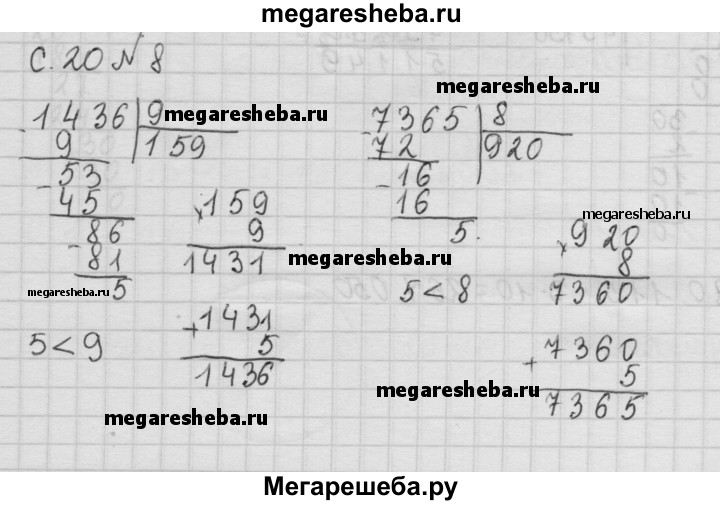 megaresheba.ru
С. 20 № 8
megaresheba.ru
1436 9
megaresheba.ru
- 9 159
53
- 45
86
- 81
5
5 < 9
159
× 9
1431
1431
+ 5
1436
7365 8
- 72 920
16
- 16
5.
5 < 8
megaresheba.ru
920
× 8
7360
7360
+ 5
7365
megaresheba.ru
megaresheba.ru
megaresheba.ru
megaresheba.ru
Мегарешеба.ру